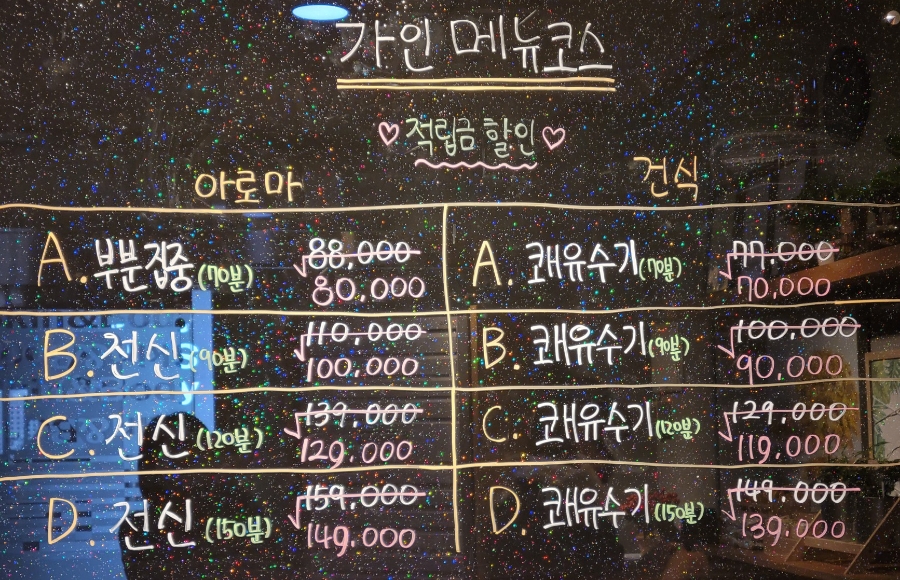 가인 메뉴코스
♡적립금 할인♡
아로마
A. 부분집중(70분) 88,000
80,000
B. 전신(90분) 110,000
100,000
C. 전신(120분) 139,000
129,000
D. 전신(150분) 159,000
149,000
건식
A. 쾌유수기(70분) 77,000
70,000
B. 쾌유수기(90분) 100,000
90,000
C. 쾌유수기(120분) 129,000
119,000
D. 쾌유수기(150분) 149,000
139,000